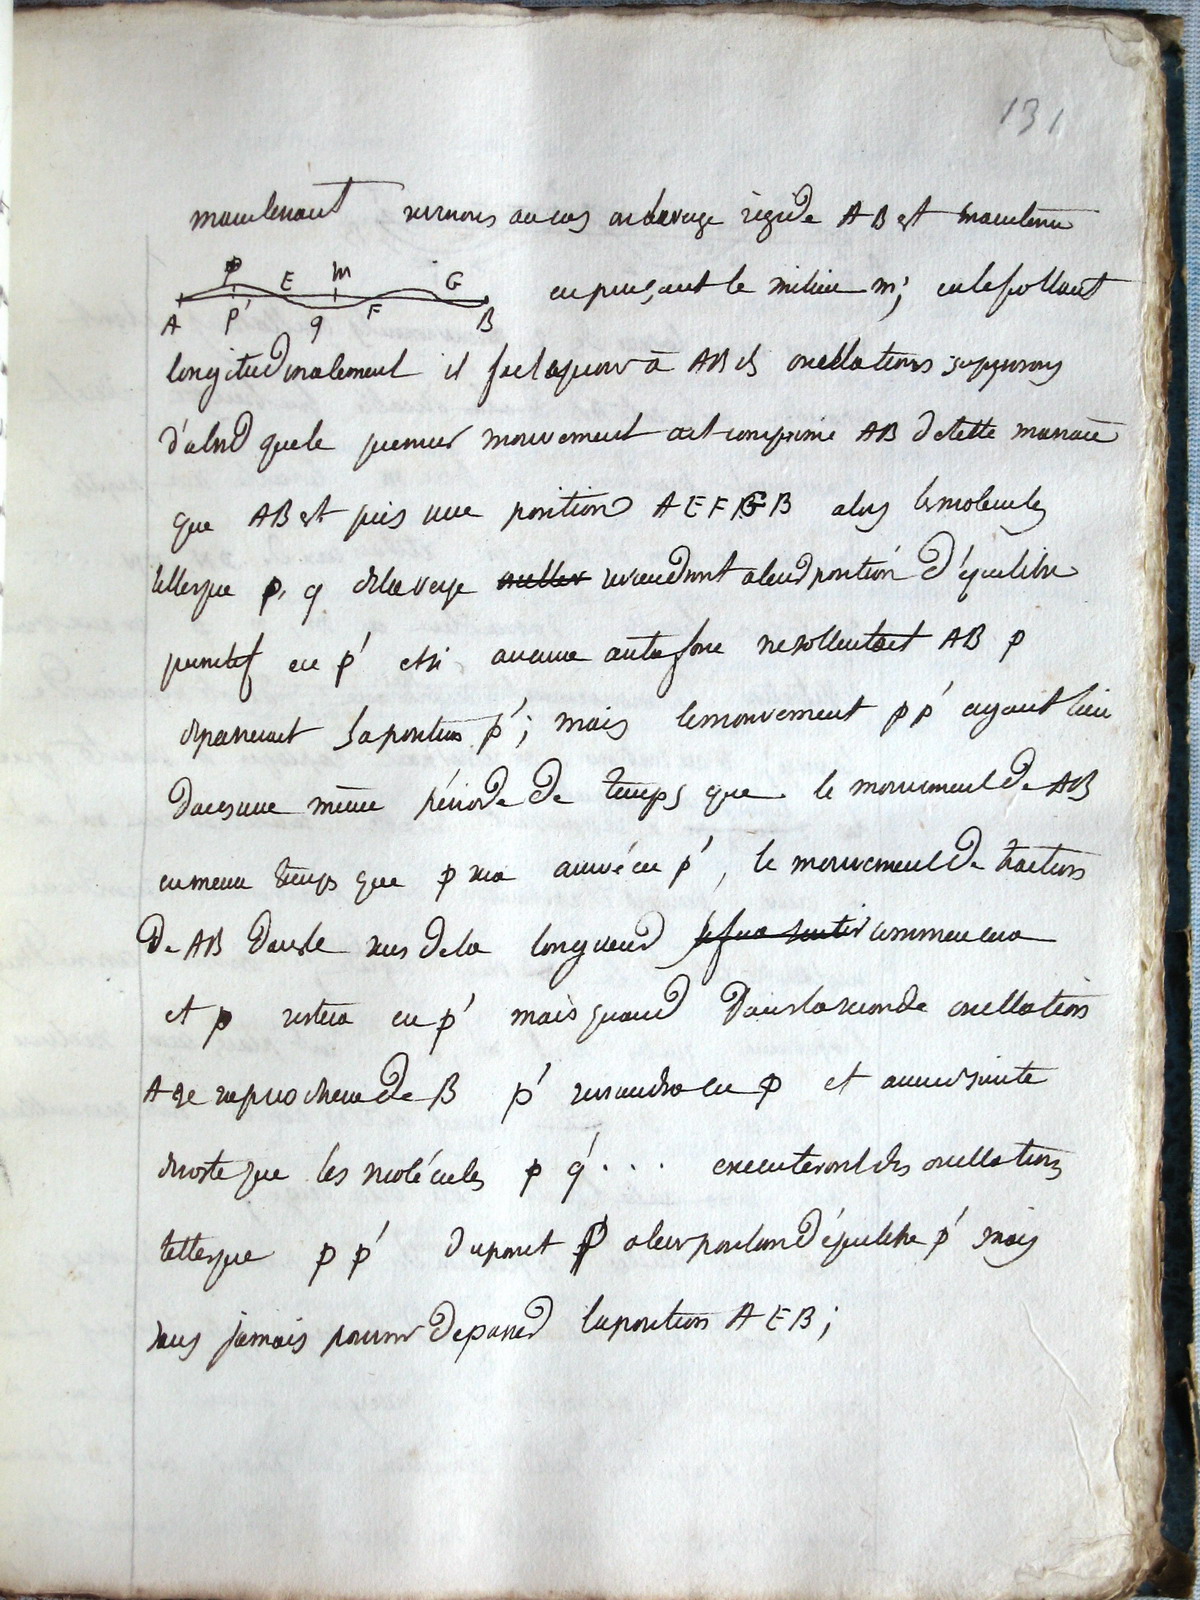 131
maintenant revenons au cas ou la verge rigide AB est maintenue
P E m G
en pinçant le milieu m; en la frottant
A P' q F B
longitudinalement il fait eprouver à AB des oscillations supposons
d'abord que le premier mouvement ait comprimé AB de telle manière
que AB est pris une position A E F G B alors les molecules
telles que p, q de la verge osciller reviendront a leur position d'équilibre
primitif en p' et si aucune autre force ne sollicitoit AB p
depasseroit sa position p'; mais le mouvement pp' ayant lieu
dans une même période de temps que le mouvement de AB
en meme temps que p sera arrivé en p', le mouvement de traction
de AB dans le sens de la longueur se fera sentir commencera
et p restera en p' mais quand dans la seconde oscillation
A se rapprochera de B p' reviendra en p et ainsi de suite
de sorte que les molécules p q' . . . . executeront des oscillations
telles que p p' du point P a leur position d'équilibre p' mais
sans jamais pouvoir depasser la position A E B;